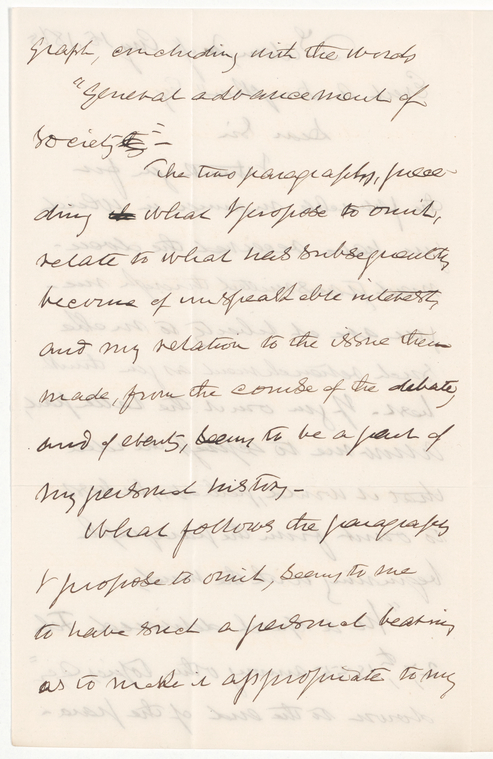 graph, concluding with the words
"General advancement of
society" –
The two paragraphs, prece-
ding what I propose to omit,
relate to what has subsequently
become of unspeakable interest,
and my relation to the issue then
made, from the course of the debate,
and of events, seems to be a part of
my personal history –
What follows the paragraphs
I propose to omit, seems to me
to have such a personal bearing
as to make it appropriate to my